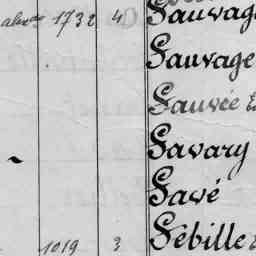 1732 4 Sauvage
Sauvage
Sauvée
Savary
Savé
1019 3 Sébille